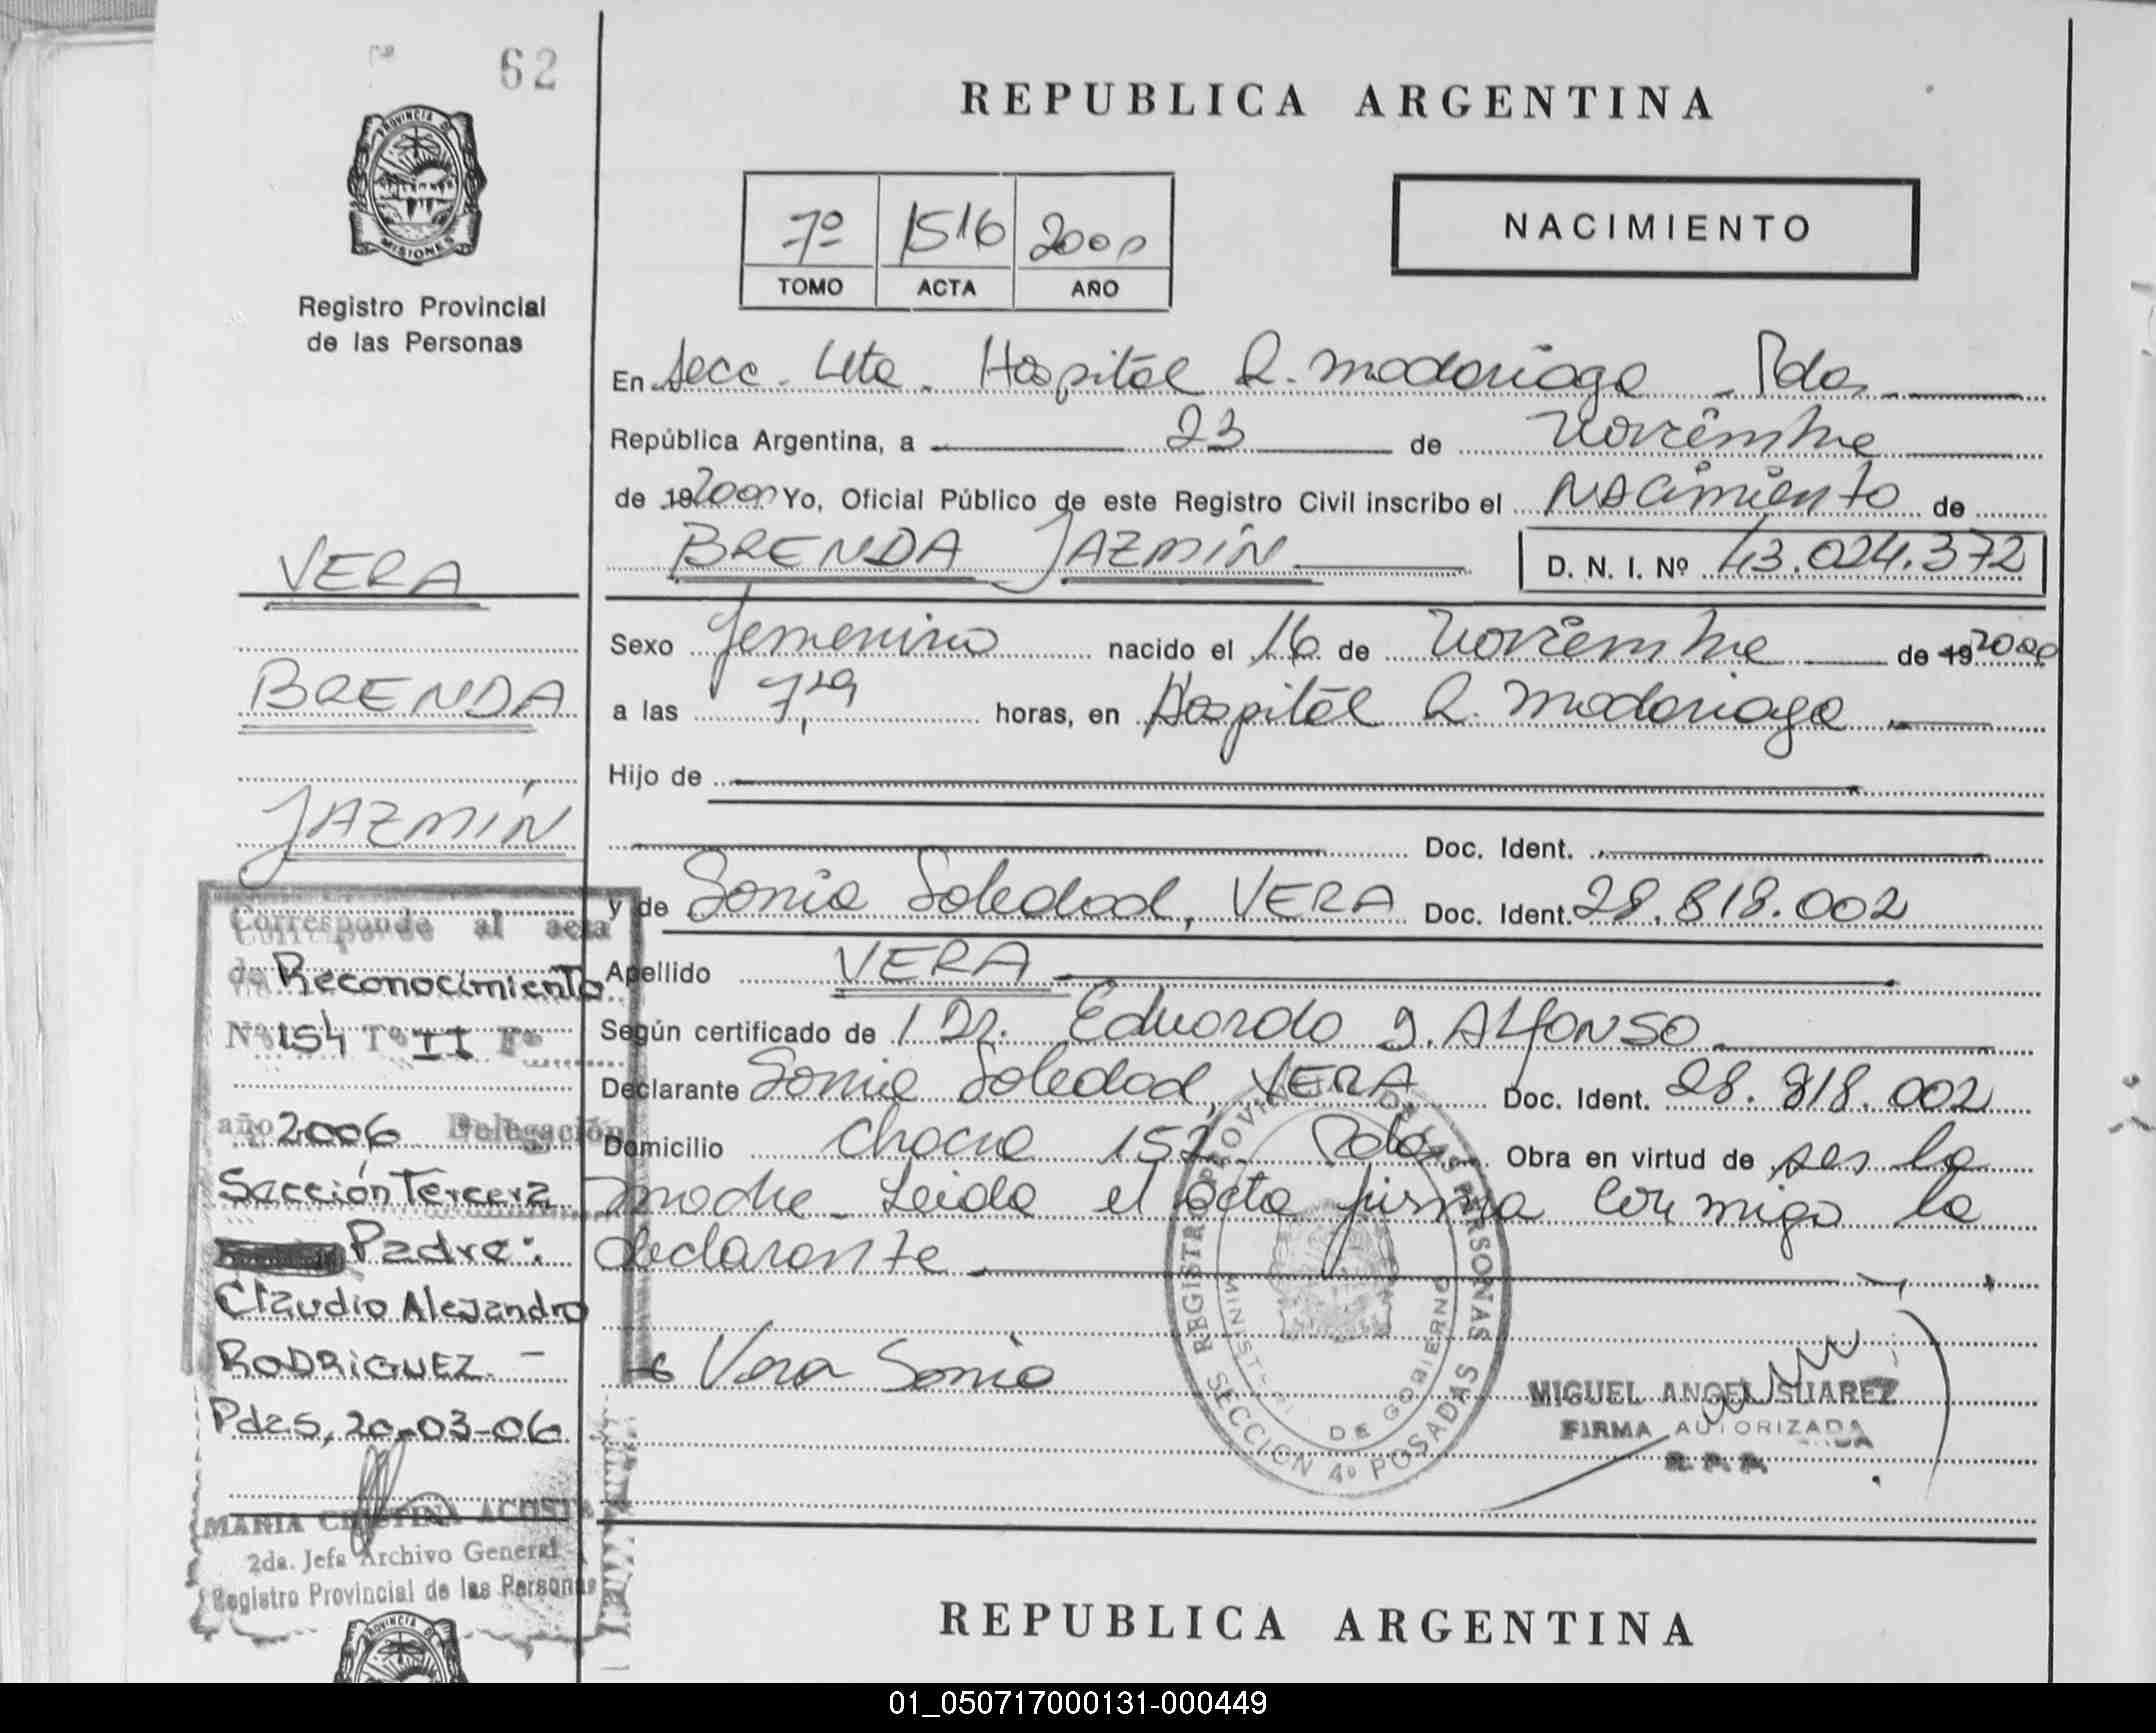 62
REPUBLICA ARGENTINA
PROVINCIA DE
MISIONES
Registro Provincial
de las Personas
7º 1516 2000
TOMO ACTA AÑO
NACIMIENTO
En Secc. 4ta. Hospital R. Madariaga - Pdas
República Argentina, a 23 de Noviembre
de 19 2000 Yo, Oficial Público de este Registro Civil inscribo el Nacimiento de
BRENDA JAZMÍN D. N. I. Nº 43.024.372
Sexo femenino nacido el 16 de Noviembre de 19 2000
a las 7,19 horas, en Hospital R. Madariaga
Hijo de
Doc. Ident.
y de Sonia Soledad, VERA Doc. Ident. 28.818.002
Apellido VERA
Según certificado de / Dr. Eduardo J. ALFONSO
Declarante Sonia Soledad, VERA Doc. Ident. 28.818.002
Domicilio Chacra 152 - Pdas Obra en virtud de ser la
madre - Leida el acta firma conmigo la
declarante
Vera Sonia
REGISTRO PROVINCIAL DE LAS PERSONAS
MINISTERIO DE GOBIERNO
SECCION 4º POSADAS
MIGUEL ANGEL SUAREZ
FIRMA AUTORIZADA
R. P. P.
VERA
BRENDA
JAZMÍN
Corresponde al acta
de Reconocimiento
Nº 154 Tº II Fº
año 2006 Delegación
Sección Tercera
Padre:
Claudio Alejandro
RODRIGUEZ. -
Pdas, 20-03-06
MARIA CRISTINA ACOSTA
2da. Jefa Archivo General
Registro Provincial de las Personas
REPUBLICA ARGENTINA
PROVINCIA DE
01_050717000131-000449